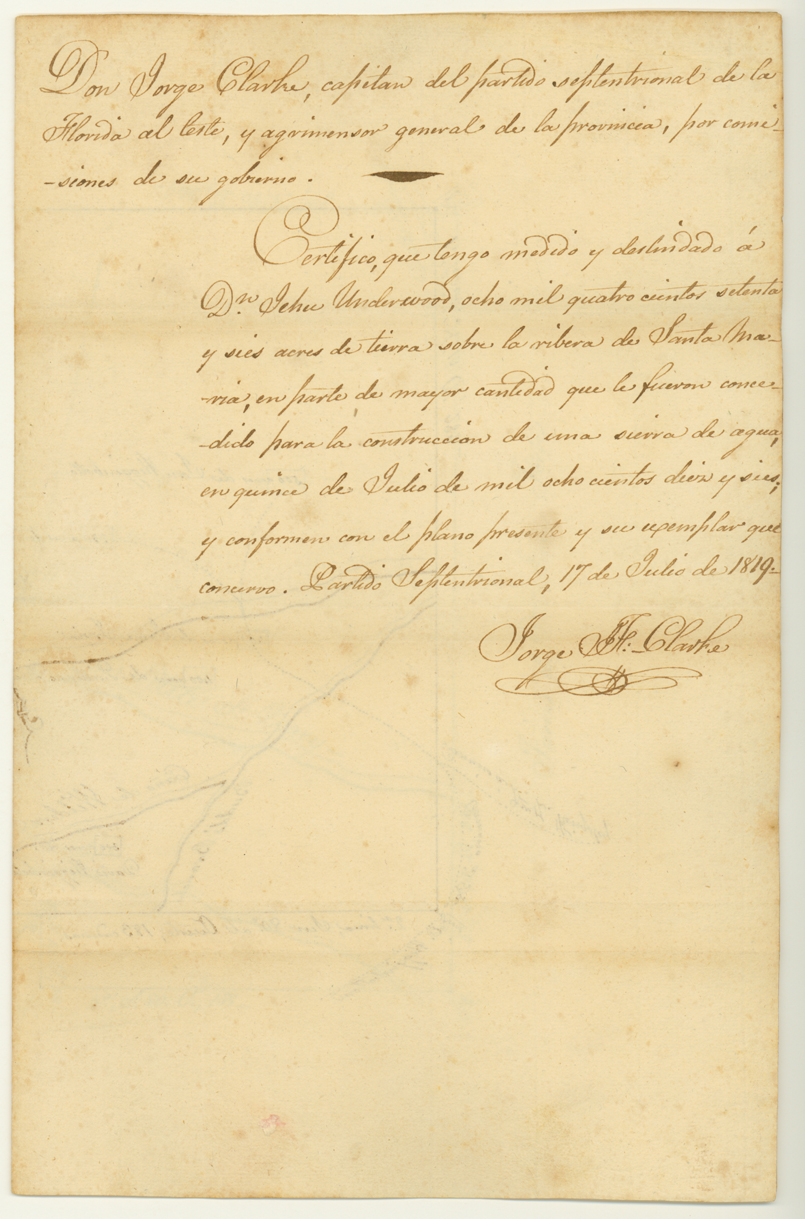 Don Jorge Clarke, capitan del partido septentrional de la
Florida al leste, y agrimensor general de la provinicia, por comi-
-siones de su gobierno.
Certifico, que tengo medido y deslindado á
Dn. Jehu Underwood, ocho mil quatro cientos setenta
y sies acres de tierra sobre la ribera de Santa Ma-
-ria, en parte de mayor cantidad que le fueron conce-
-dido para la construccion de una sierra de agua,
en quince de Julio de mil ocho cientos diez y sies;
y conformen con el plano presente y su exemplar que
concervo. Partido Septentrional, 17 de Julio de 1819.
Jorge J. F. Clarke